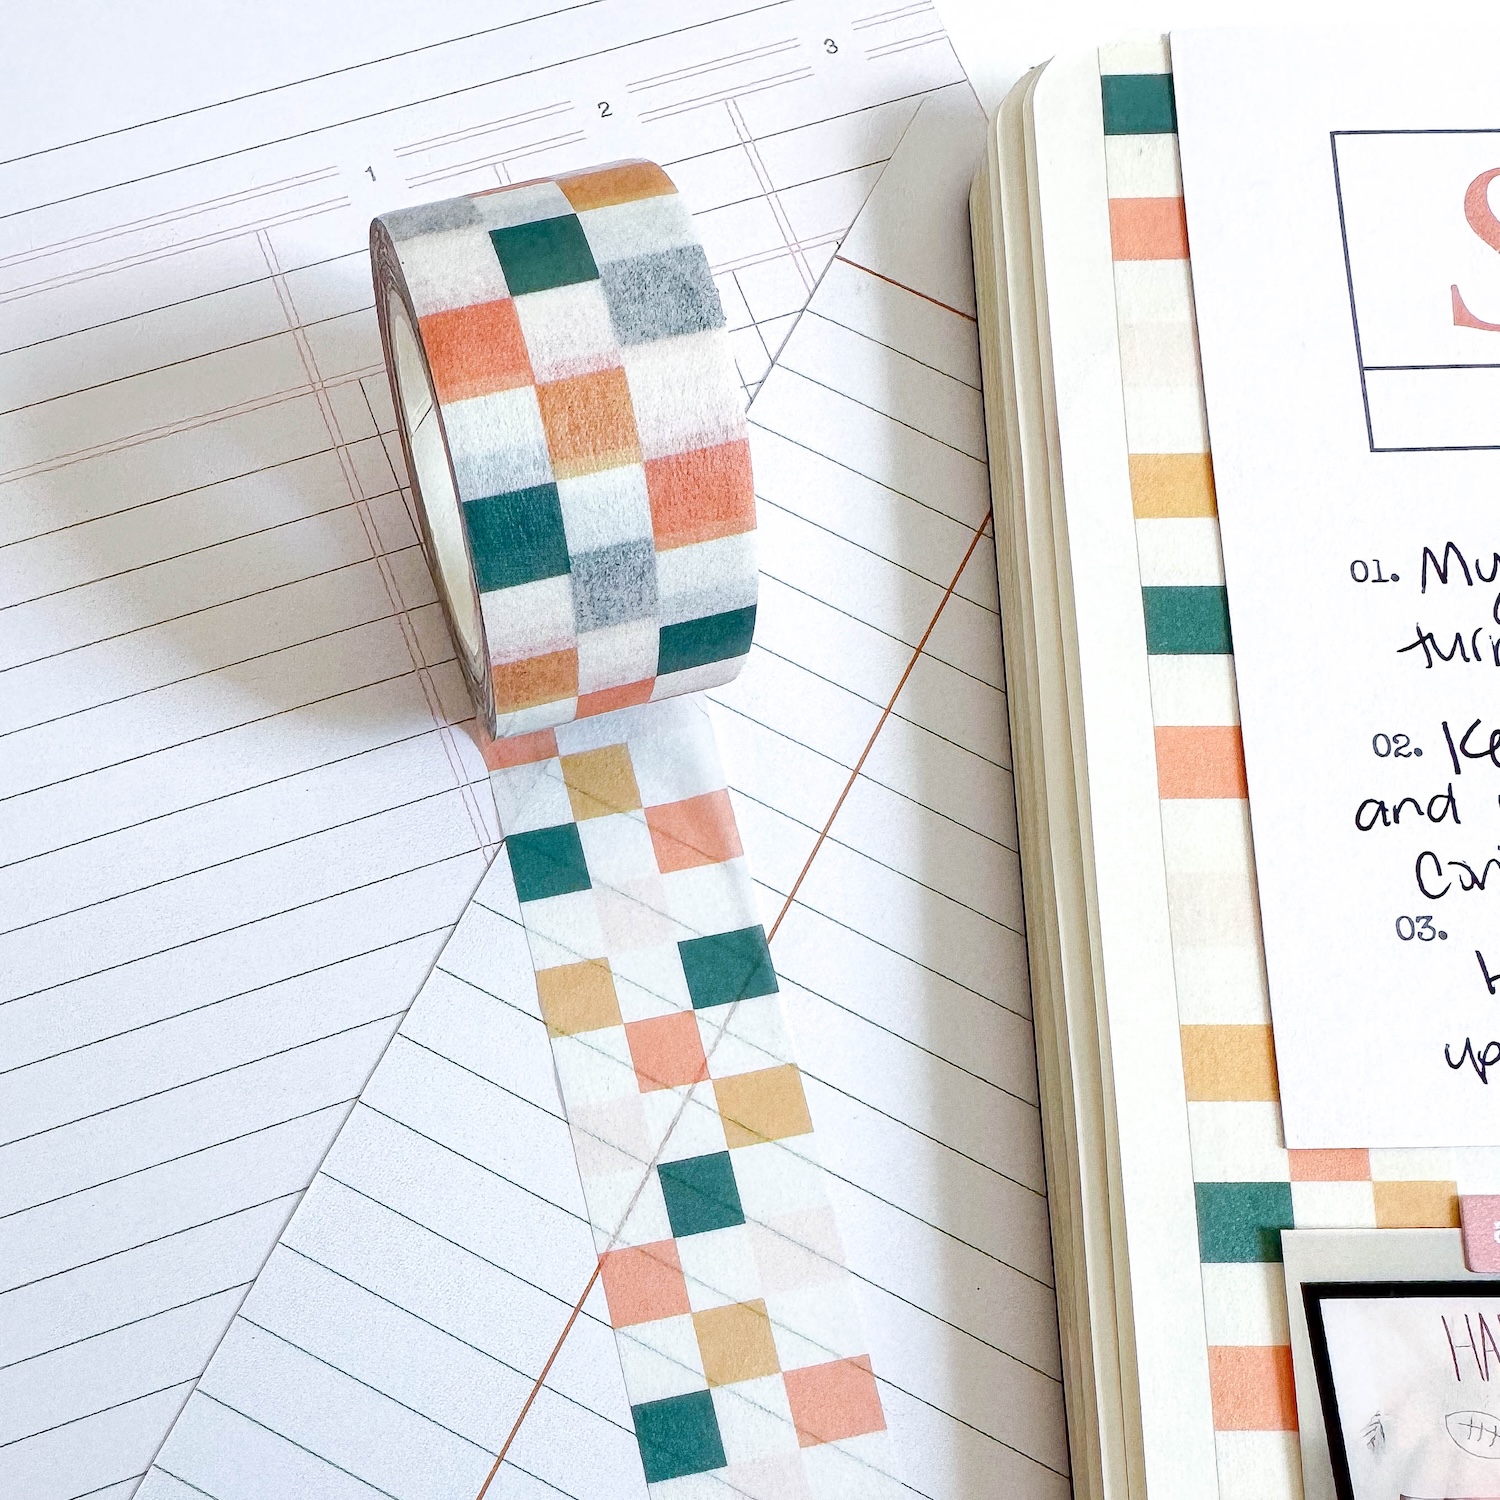 1
2
3
S
01. My
turn
02. Ke
and
Con
03.
H
up
HA